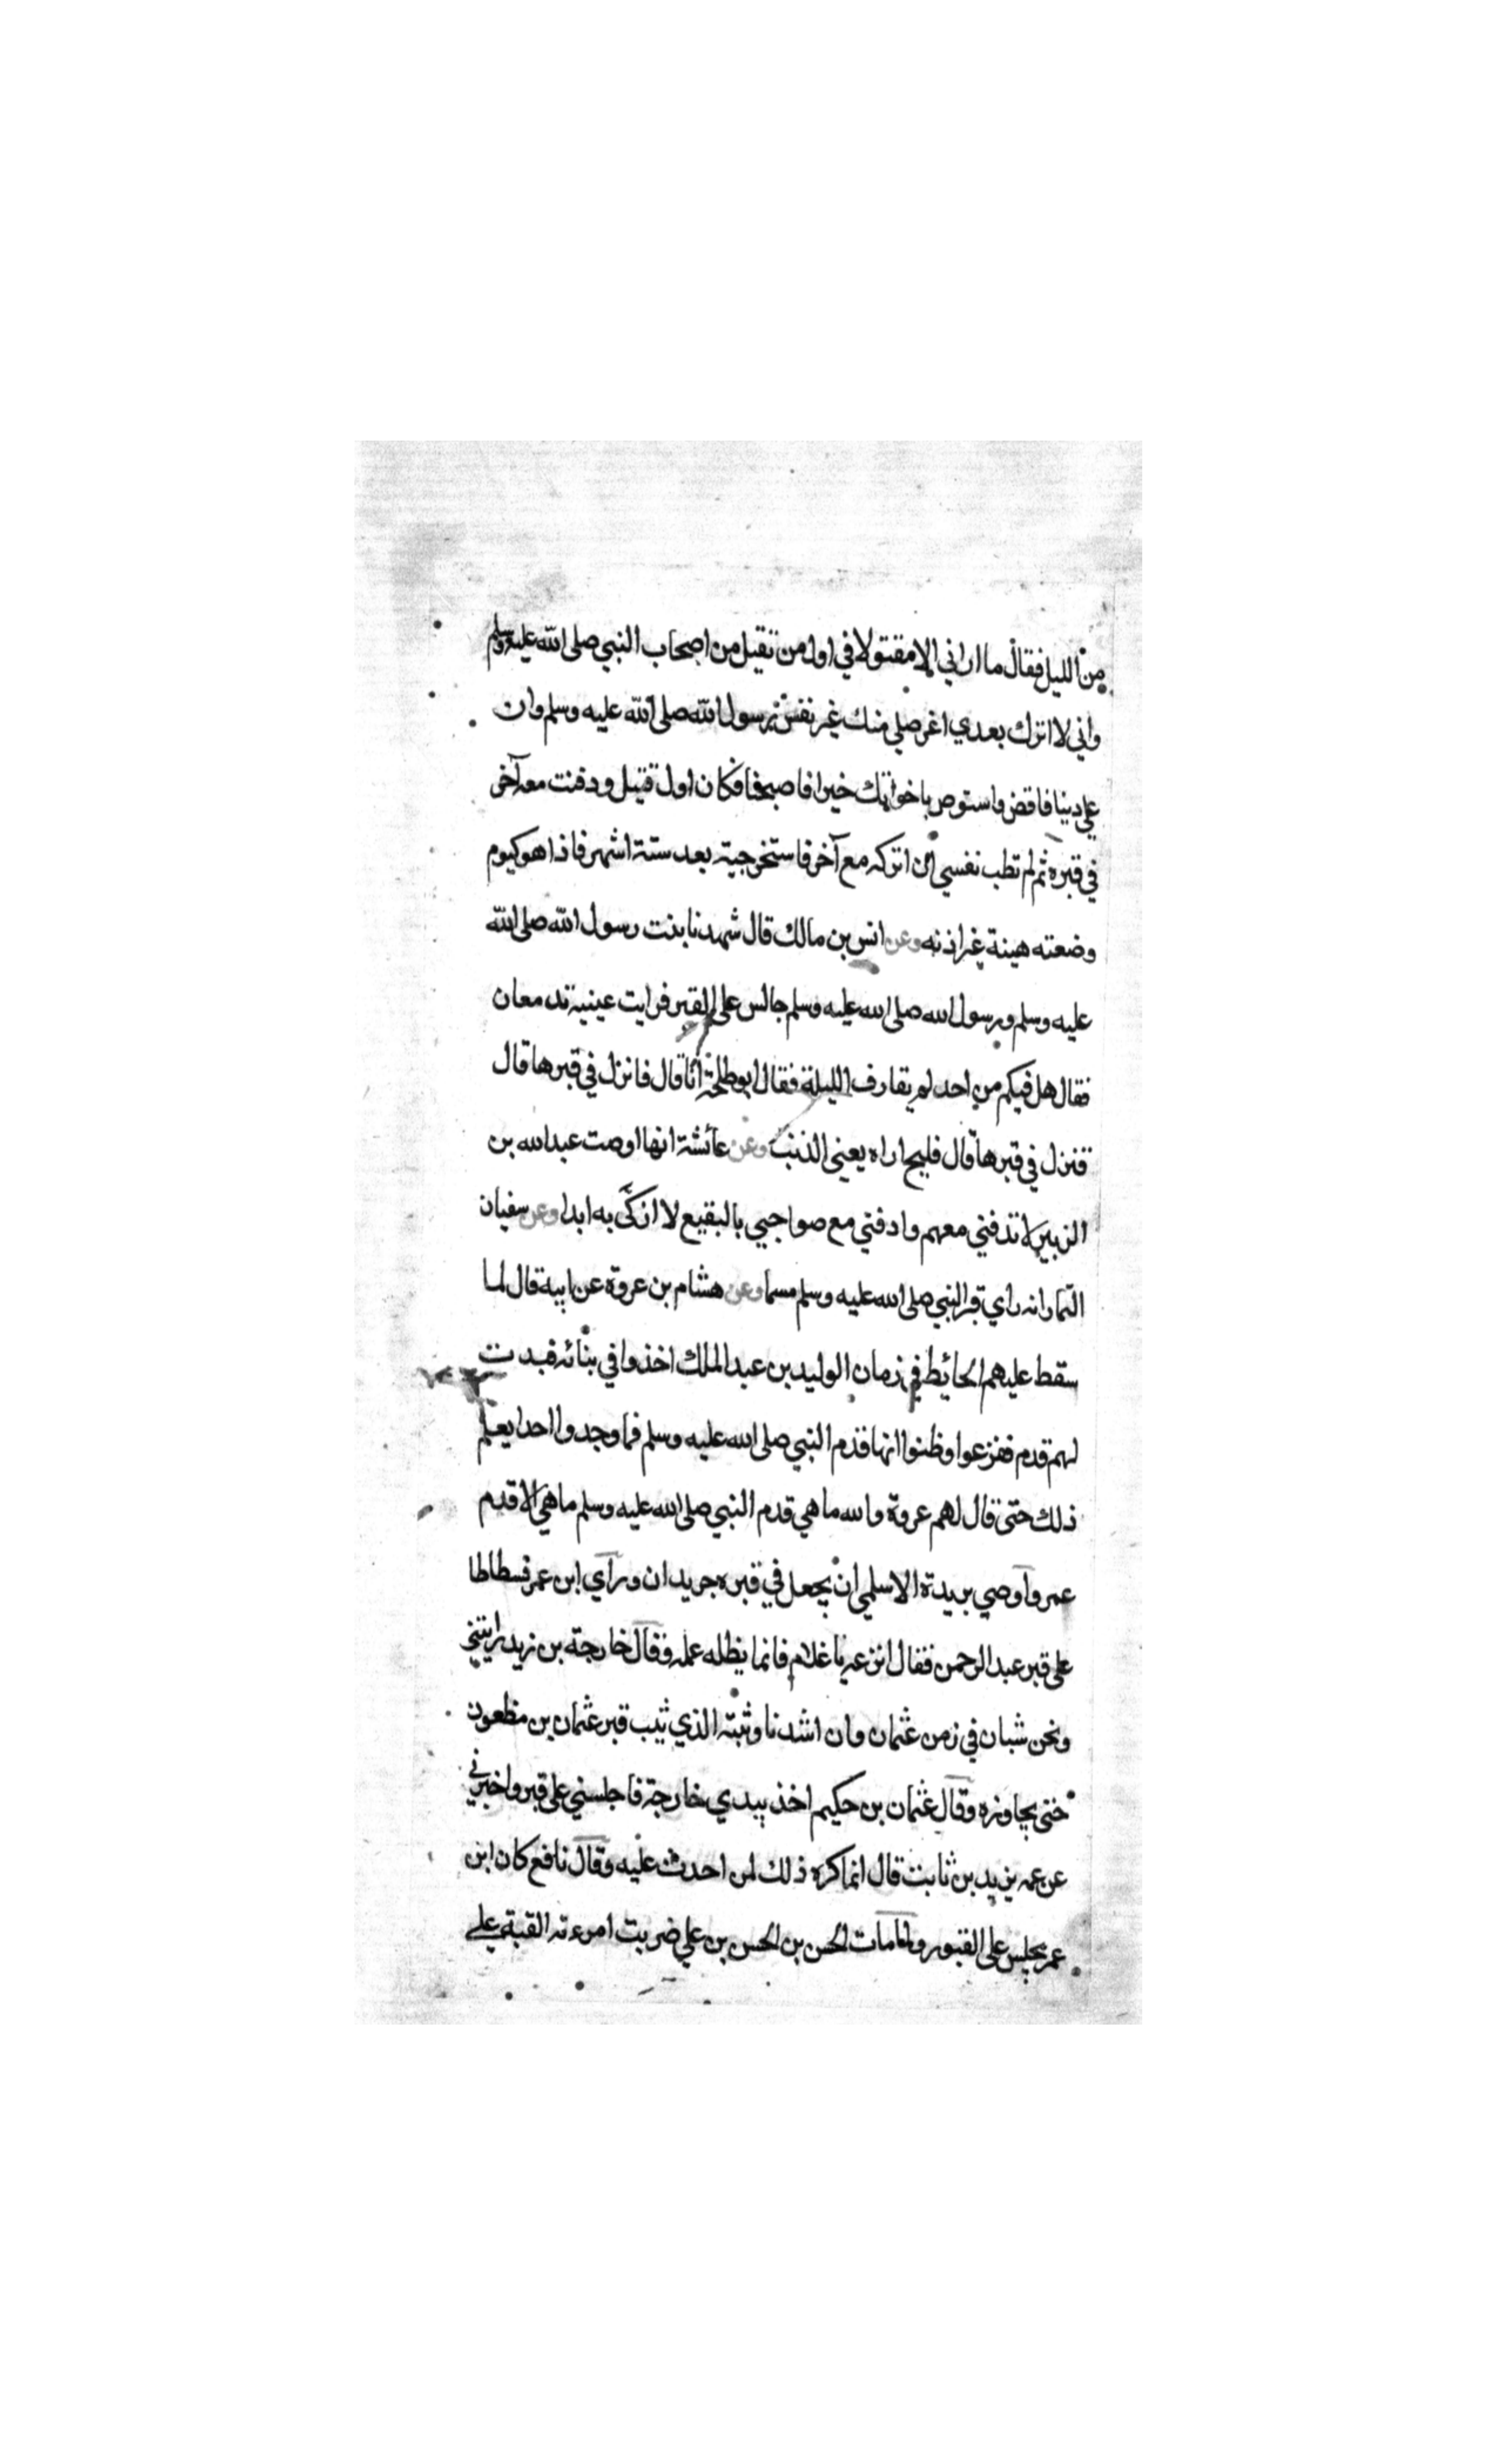 من الليل فقال ما اراني الا مقتولا في اول من تقيل من اصحاب النبي صلى الله عليه وسلم
واني لا اترك بعدي اعز علي منك غير نفس رسول الله صلى الله عليه وسلم وان
علي دينا فاقض واستوص باخواتك خيرا فاصبحنا فكان اول قتيل ودفنت معه آخر
في قبره ثم لم تطب نفسي ان اتركه مع آخر فاستخرجته بعد ستة اشهر فاذا هو كيوم
وضعته هينة غير اذنه وعن انس بن مالك قال شهدنا بنت رسول الله صلى الله
عليه وسلم ورسول الله صلى الله عليه وسلم جالس على القبر فرايت عينيه تدمعان
فقال هل فيكم من احد لم يقارف الليلة فقال ابو طلحة انا قال فانزل في قبرها قال
فنزل في قبرها قال فليح اراه يعني الذنب وعن عائشة انها اوصت عبد الله بن
الزبير لا تدفني معهم وادفني مع صواحبي بالبقيع لا ازكى به ابدا وعن سفيان
التمار انه راي قبر النبي صلى الله عليه وسلم مسما وعن هشام بن عروة عن ابيه قال لما
سقط عليهم الحائط في زمان الوليد بن عبد الملك اخذوا في بنائه فبدت
لهم قدم ففزعوا وظنوا انها قدم النبي صلى الله عليه وسلم فما وجدوا احدا يعلم
ذلك حتى قال لهم عروة والله ما هي قدم النبي صلى الله عليه وسلم ما هي الا قدم
عمر واوصي بريدة الاسلمي ان يجعل في قبره جريدان وراي ابن عمر فسطاطا
على قبر عبد الرحمن فقال انزعه يا غلام فانما يظله عمله وقال خارجة بن زيد رايتني
ونحن شبان في زمن عثمان وان اشدنا وثبة الذي يثب قبر عثمان بن مظعون
حتى يجاوزه وقال عثمان بن حكيم اخذ بيدي خارجة فاجلسني على قبر واخبرني
عن عمه يزيد بن ثابت قال انما كره ذلك لمن احدث عليه وقال نافع كان ابن
عمر يجلس على القبور ولما مات الحسن بن الحسن بن علي ضربت امرءته القبة على